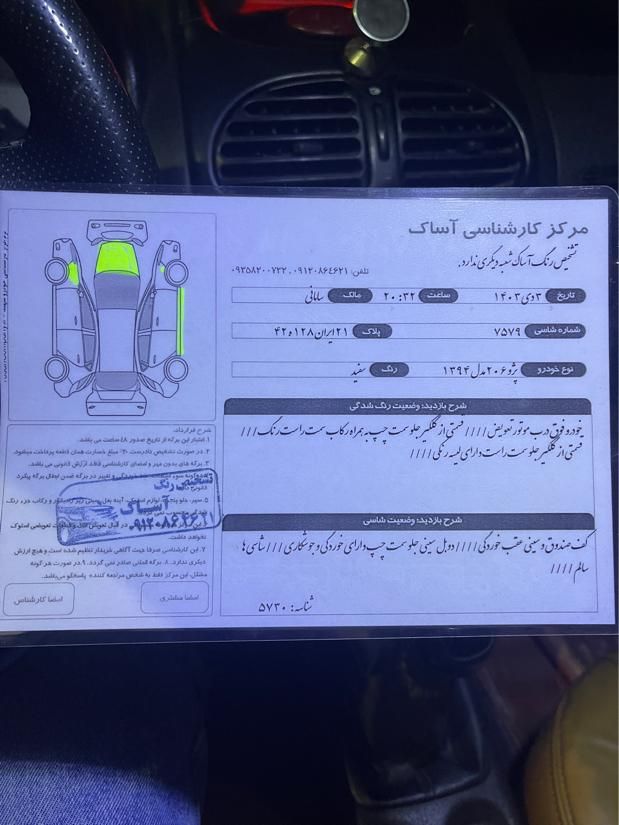 مرکز کارشناسی آساک
تشخیص رنگ آساک شعبه دیگری ندارد.
تلفن: ۰۹۱۲۰۸۶۴۶۲۱ ، ۰۹۳۵۸۲۰۰۷۲۲
تاریخ ۳ دی ۱۴۰۳ ساعت ۲۰:۳۲ مالک سامانی
شماره شاسی ۷۵۷۹ پلاک ۲۱ ایران ۱۲۸ ه ۴۲
نوع خودرو پژو ۲۰۶ مدل ۱۳۹۴ رنگ سفید
شرح بازدید: وضعیت رنگ شدگی
خودرو فوق درب موتور تعویض //// قسمتی از گلگیر جلو سمت چپ به همراه رکاب سمت راست رنگ ///
قسمتی از گلگیر جلو سمت راست دارای لیسه رنگی ////
شرح بازدید: وضعیت شاسی
کف صندوق و سینی عقب خوردگی //// دوبل سینی جلو سمت چپ دارای خوردگی و جوشکاری /// شاسی ها
سالم ////
شناسه: ۵۷۳۰
شرح قرارداد:
۱. اعتبار این برگه از تاریخ صدور ۴۸ ساعت می باشد.
۲. در صورت تشخیص نادرست ۲۰٪ مبلغ خسارت همان قطعه پرداخت میشود.
۳. برگه های بدون مهر و امضای کارشناسی فاقد ارزش قانونی می باشد.
۵. سپر، جلو پنجره،
۷. این کارشناسی صرفا جهت آگاهی خریدار تنظیم شده است و هیچ ارزش
دیگری ندارد. ۸. برگه المثنی صادر نمی گردد. ۹. در صورت هر گونه
مشکل، این مرکز فقط به شخص مراجعه کننده پاسخگو می‌باشد.
تشخیص رنگ
آساک
۰۹۱۲۰۸۶۴۶۲۱
امضا مشتری
امضا کارشناس